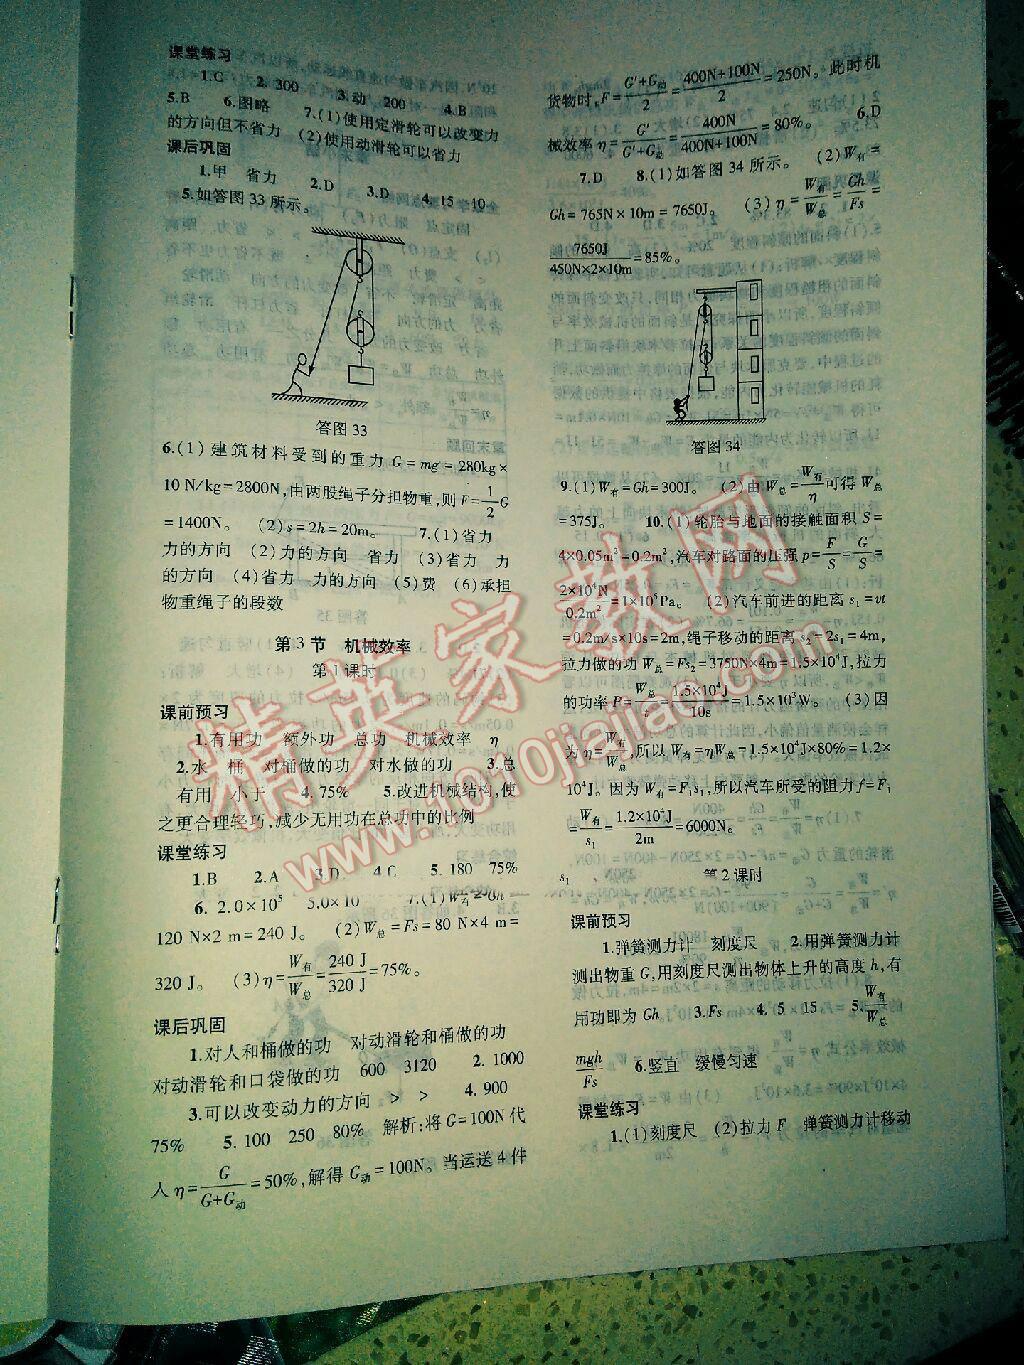 课堂练习
1.C 2. 300 3.动 200 4.B
5.B 6.图略 7.(1)使用定滑轮可以改变力
的方向但不省力 (2)使用动滑轮可以省力
课后巩固
1.甲 省力 2.D 3.D 4. 15 10
5.如答图 33 所示。
答图 33
6.(1)建筑材料受到的重力 G=mg=280kg×
10 N/kg=2800N,由两股绳子分担物重,则 F=1/2G
=1400N。 (2)s=2h=20m。 7.(1)省力
力的方向 (2)力的方向 省力 (3)省力 力
的方向 (4)省力 力的方向 (5)费 (6)承担
物重绳子的段数
第 3 节 机械效率
第 1 课时
课前预习
1.有用功 额外功 总功 机械效率 η
2.水 桶 对桶做的功 对水做的功 3.总
有用 小于 4. 75% 5.改进机械结构,使
之更合理轻巧,减少无用功在总功中的比例
课堂练习
1.B 2.A 3.D 4.C 5. 180 75%
6. 2.0×10⁵ 5.0×10 7.(1)W有=Gh=
120 N×2 m=240 J。 (2)W总=Fs=80 N×4 m=
320 J。 (3)η=W有/W总=240 J/320 J=75%。
课后巩固
1.对人和桶做的功 对动滑轮和桶做的功
对动滑轮和口袋做的功 600 3120 2. 1000
3.可以改变动力的方向 > > 4. 900
75% 5. 100 250 80% 解析:将 G=100N 代
人 η=G/(G+G动)=50%,解得 G动=100N。当运送 4 件
货物时,F=(G′+G动)/2=(400N+100N)/2=250N。此时机
械效率 η=G′/(G′+G动)=400N/(400N+100N)=80%。 6.D
7.D 8.(1)如答图 34 所示。 (2)W有=
Gh=765N×10m=7650J。 (3)η=W有/W总=Gh/Fs=
7650J/(450N×2×10m)=85%。
答图 34
9.(1)W有=Gh=300J。 (2)由 W总=W有/η可得 W总
=375J。 10.(1)轮胎与地面的接触面积 S=
4×0.05m²=0.2m²,汽车对路面的压强 p=F/S=G/S=
2×10⁴N/0.2m²=1×10⁵Pa。 (2)汽车前进的距离 s₁=vt
=0.2m/s×10s=2m,绳子移动的距离 s₂=2s₁=4m,
拉力做的功 W总=Fs₂=3750N×4m=1.5×10⁴J,拉力
的功率 P=W总/t=1.5×10⁴J/10s=1.5×10³W。 (3)因
为 η=W有/W总,所以 W有=ηW总=1.5×10⁴J×80%=1.2×
10⁴J。因为 W有=F₁s₁,所以汽车所受的阻力 f=F₁
=W有/s₁=1.2×10⁴J/2m=6000N。
第 2 课时
课前预习
1.弹簧测力计 刻度尺 2.用弹簧测力计
测出物重 G,用刻度尺测出物体上升的高度 h,有
用功即为 Gh 3.Fs 4. 5 15 5.W有/W总
mgh/Fs 6.竖直 缓慢匀速
课堂练习
1.(1)刻度尺 (2)拉力 F 弹簧测力计移动
精英家教网
www.1010jiajiao.com